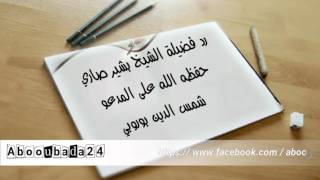 رد فضيلة الشيخ بشير صاري
حفظه الله على المدعو
شمس الدين بوروبي
Abooubada24
https://www.facebook.com/aboou